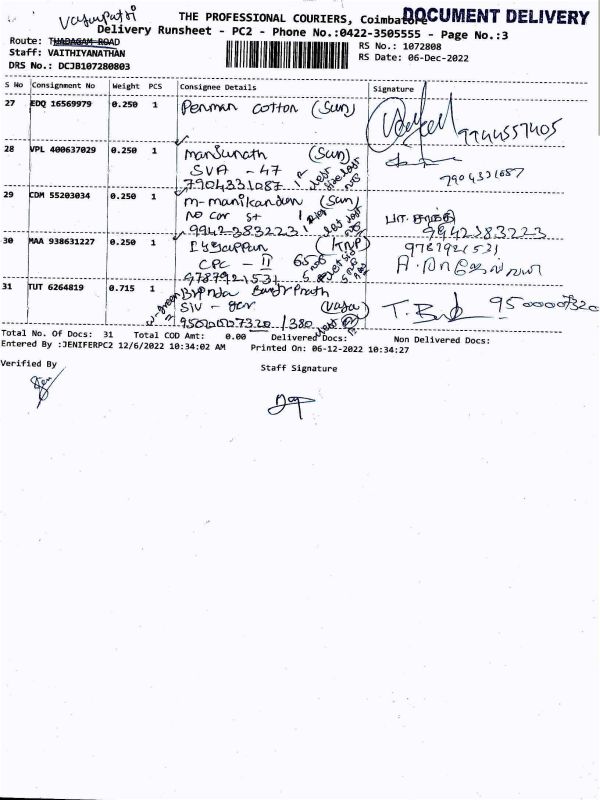 DOCUMENT DELIVERY
THE PROFESSIONAL COURIERS, Coimbatore
Delivery Runsheet - PC2 - Phone No.:0422-3505555 - Page No.:3
Route: THADAGAM ROAD
RS No.: 1072808
Staff: VAITHIYANATHAN
RS Date: 06-Dec-2022
DRS No.: DCJB107280803
S No Consignment No Weight PCS Consignee Details Signature
27 EDQ 16569979 0.250 1 Penman cotton (Sun)
9744557405
28 VPL 400637029 0.250 1 Manjunath (Sun)
SVA - 47
7904331087
7904331087
29 CDM 55203034 0.250 1 M-Manikandan (Sun)
No cor St
9942383223
9942383223
30 MAA 938631227 0.250 1 Iyyappan (TNP)
CPC - II
9787921531
9787921531
31 TUT 6264819 0.715 1 Brinda
Siv - gar (Vaja)
9500007320 /380
T. B
9500007320
Total No. Of Docs: 31 Total COD Amt: 0.00 Delivered Docs: Non Delivered Docs:
Entered By :JENIFERPC2 12/6/2022 10:34:02 AM Printed On: 06-12-2022 10:34:27
Verified By
Staff Signature